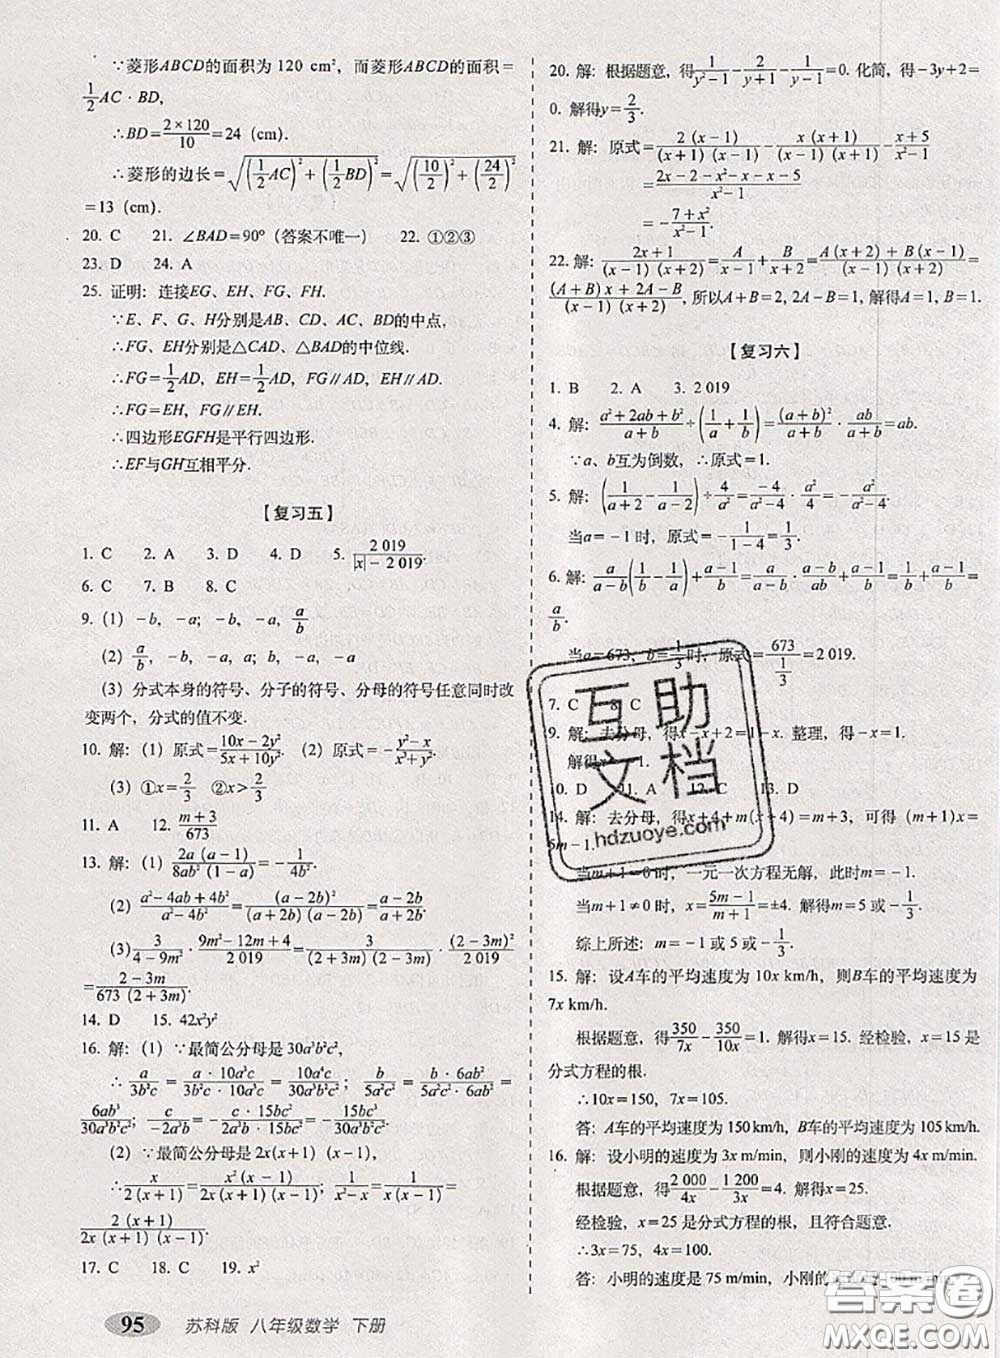 ∵菱形ABCD的面积为120 cm²，而菱形ABCD的面积=
1/2 AC·BD，
∴BD=(2×120)/10=24（cm）.
∴菱形的边长=√((1/2 AC)²+(1/2 BD)²)=√((10/2)²+(24/2)²)
=13（cm）.
20. C  21. ∠BAD=90°（答案不唯一）  22. ①②③
23. D  24. A
25. 证明：连接EG、EH、FG、FH.
∵E、F、G、H分别是AB、CD、AC、BD的中点，
∴FG、EH分别是△CAD、△BAD的中位线.
∴FG=1/2 AD，EH=1/2 AD，FG∥AD，EH∥AD.
∴FG=EH，FG∥EH.
∴四边形EGFH是平行四边形.
∴EF与GH互相平分.
【复习五】
1. C  2. A  3. D  4. D  5. 2 019/(|x|-2 019).
6. C  7. B  8. C
9.（1）-b，-a；-b，-a，a/b
（2）a/b，-b，-a，a；b，-a，-a
（3）分式本身的符号、分子的符号、分母的符号任意同时改
变两个，分式的值不变.
10. 解：（1）原式=(10x-2y²)/(5x+10y²).（2）原式=-(y²-x)/(x³+y²).
（3）①x=2/3  ②x>2/3
11. A  12. (m+3)/673
13. 解：（1）2a（a-1）/8ab²（1-a）=-1/4b².
（2）(a²-4ab+4b²)/(a²-4b²)=(a-2b)²/（a+2b）（a-2b）=(a-2b)/(a+2b).
（3）3/(4-9m²)·(9m²-12m+4)/2 019=3/（2+3m）（2-3m）·（2-3m）²/2 019
=(2-3m)/673（2+3m）.
14. D  15. 42x²y²
16. 解：（1）∵最简公分母是30a³b²c²，
∴a/3b²c=a·10a³c/3b²c·10a³c=10a⁴c/30a³b²c²；b/5a²c²=b·6ab²/5a²c²·6ab²=
6ab³/30a³b²c²；c/-2a³b=-c·15bc²/2a³b·15bc²=-15bc³/30a³b²c².
（2）∵最简公分母是2x（x+1）（x-1），
∴x/2（x+1）=x²（x-1）/2x（x+1）（x-1）；1/(x²-x)=1/x（x-1）=
2（x+1）/2x（x+1）（x-1）.
17. C  18. C  19. x²
95 苏科版 八年级数学 下册
20. 解：根据题意，得1/(y²-1)-2/(y+1)-1/(y-1)=0. 化简，得-3y+2=
0. 解得y=2/3.
21. 解：原式=2（x-1）/（x+1）（x-1）-x（x+1）/（x+1）（x-1）-(x+5)/(x²-1)
=(2x-2-x²-x-x-5)/(x²-1)
=-(7+x²)/(x²-1).
22. 解：(2x+1)/（x-1）（x+2）=A/(x-1)+B/(x+2)=A（x+2）+B（x-1）/（x-1）（x+2）=
（A+B）x+2A-B/（x-1）（x+2），所以A+B=2，2A-B=1，解得A=1，B=1.
【复习六】
1. B  2. A  3. 2 019
4. 解：(a²+2ab+b²)/(a+b)÷(1/a+1/b)=(a+b)²/(a+b)·ab/(a+b)=ab.
∵a、b互为倒数，∴原式=1.
5. 解：(1/(a+2)-1/(a-2))÷4/a²=-4/(a²-4)·a²/4=-a²/(a²-4).
当a=-1时，原式=-1/(1-4)=1/3.
6. 解：a/(a-b)(1/b-1/a)+(a-1)/b=a/(a-b)·(a-b)/ab+(a-1)/b=1/b+(a-1)/b=
a/b.
当a=673，b=1/3时，原式=673/(1/3)=2 019.
7. C  8. C
9. 解：去分母，得x-x+2=1-x. 整理，得-x=1.
解得x=-1.
10. D  A  12. C  13. D
14. 解：去分母，得x+4+m（x-4）=m+3，可得（m+1）x=
5m-1.
当m+1=0时，一元一次方程无解，此时m=-1，
当m+1≠0时，x=(5m-1)/(m+1)=±4. 解得m=5或-1/3.
综上所述：m=-1或5或-1/3.
15. 解：设A车的平均速度为10x km/h，则B车的平均速度为
7x km/h.
根据题意，得350/7x-350/10x=1. 解得x=15. 经检验，x=15是
分式方程的根.
∴10x=150，7x=105.
答：A车的平均速度为150 km/h，B车的平均速度为105 km/h.
16. 解：设小明的速度为3x m/min，则小刚的速度为4x m/min.
根据题意，得2 000/4x-1 200/3x=4. 解得x=25.
经检验，x=25是分式方程的根，且符合题意.
∴3x=75，4x=100.
答：小明的速度是75 m/min，小刚的
互助
文档
hdzuoye.com
答案圈
MXQE.COM